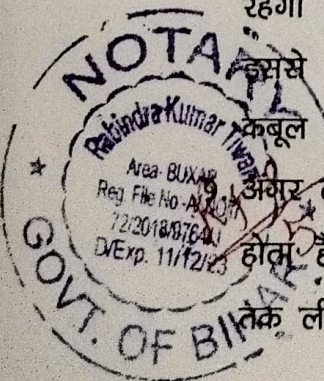 रहेगा
इससे
कबूल
अगर
होता है
तक ली
NOTARY
Rabindra Kumar Tiwari
Area- BUXAR
Reg. File No-
72/2018/8764
D/Exp. 11/12/23
GOVT. OF BIHAR